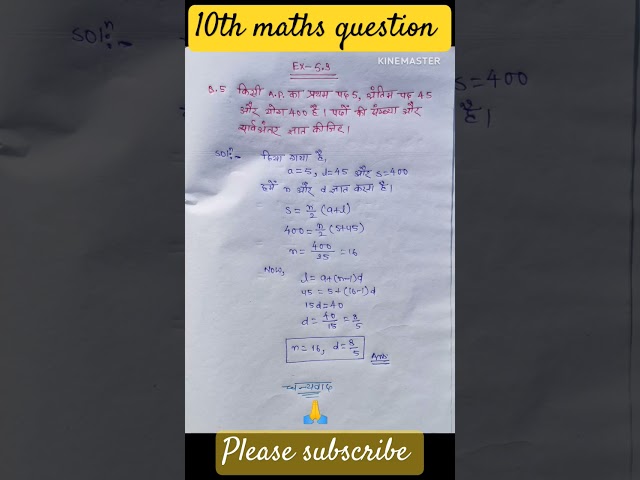 10th maths question
KINEMASTER
Ex-5.3
Q.5 किसी A.P. का प्रथम पद 5, अंतिम पद 45
और योग 400 है। पदों की संख्या और
सार्व अंतर ज्ञात कीजिए।
Soln:- दिया गया है,
a=5, l=45 और S=400
हमें n और d ज्ञात करना है।
S = n/2 (a+l)
400 = n/2 (5+45)
n = 400/25 = 16
Now,
l = a+(n-1)d
45 = 5+(16-1)d
15d = 40
d = 40/15 = 8/5
n=16, d=8/5 Ans
धन्यवाद
🙏
Please subscribe
Soln:-
S=400
है।